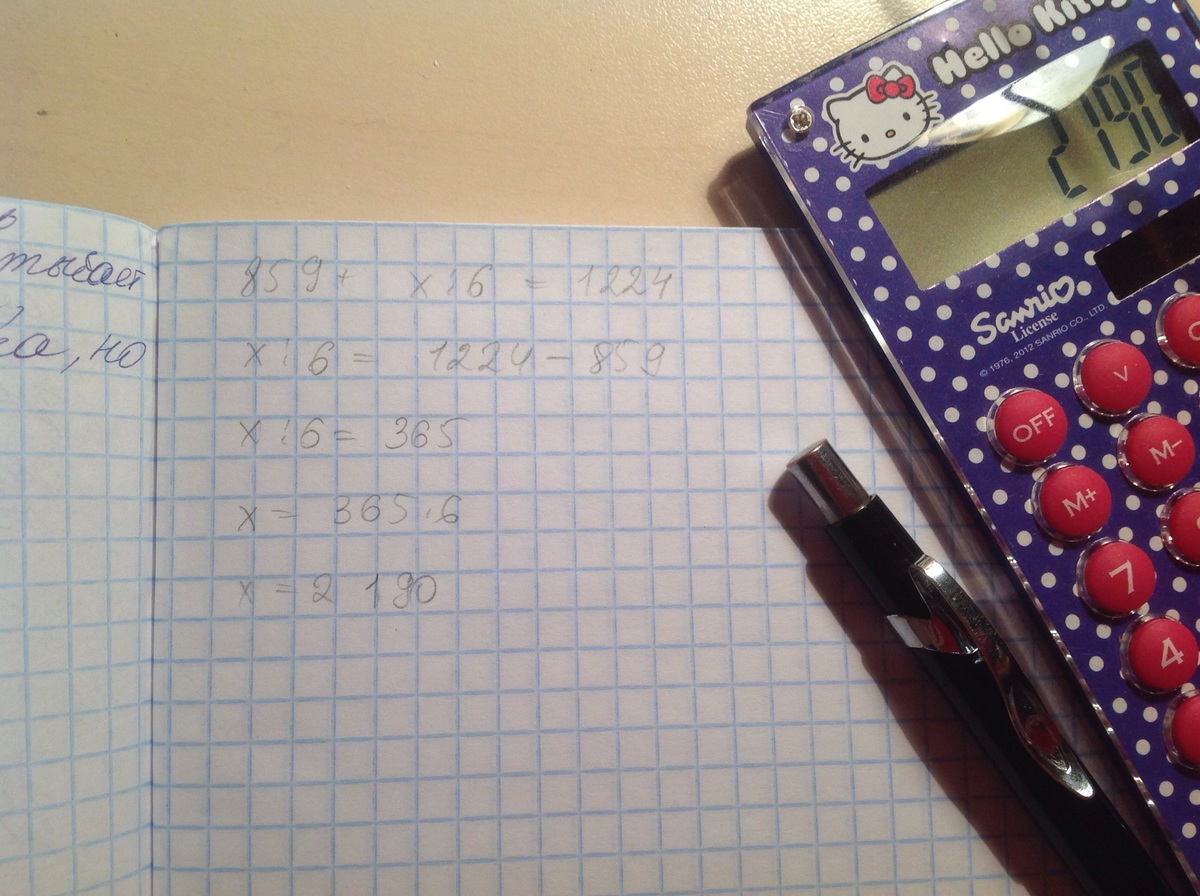 в
тывает
ка, но
859 + x : 6 = 1224
x : 6 = 1224 - 859
x : 6 = 365
x = 365 · 6
x = 2 190
Hello Kitty
2190
Sanrio
License
© 1976, 2012 SANRIO CO., LTD
C
V
OFF
M-
M+
7
4